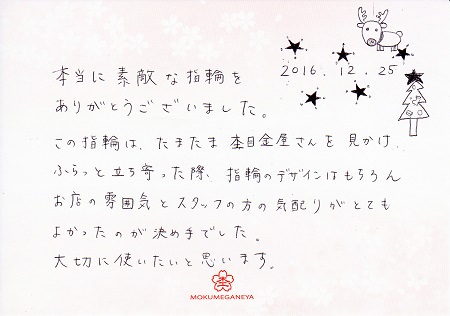 2016.12.25
本当に素敵な指輪を
ありがとうございました。
この指輪は、たまたま杢目金屋さんを見かけ
ふらっと立ち寄った際、指輪のデザインはもちろん
お店の雰囲気とスタッフの方の気配りがとても
よかったのが決め手でした。
大切に使いたいと思います。
杢
MOKUMEGANEYA